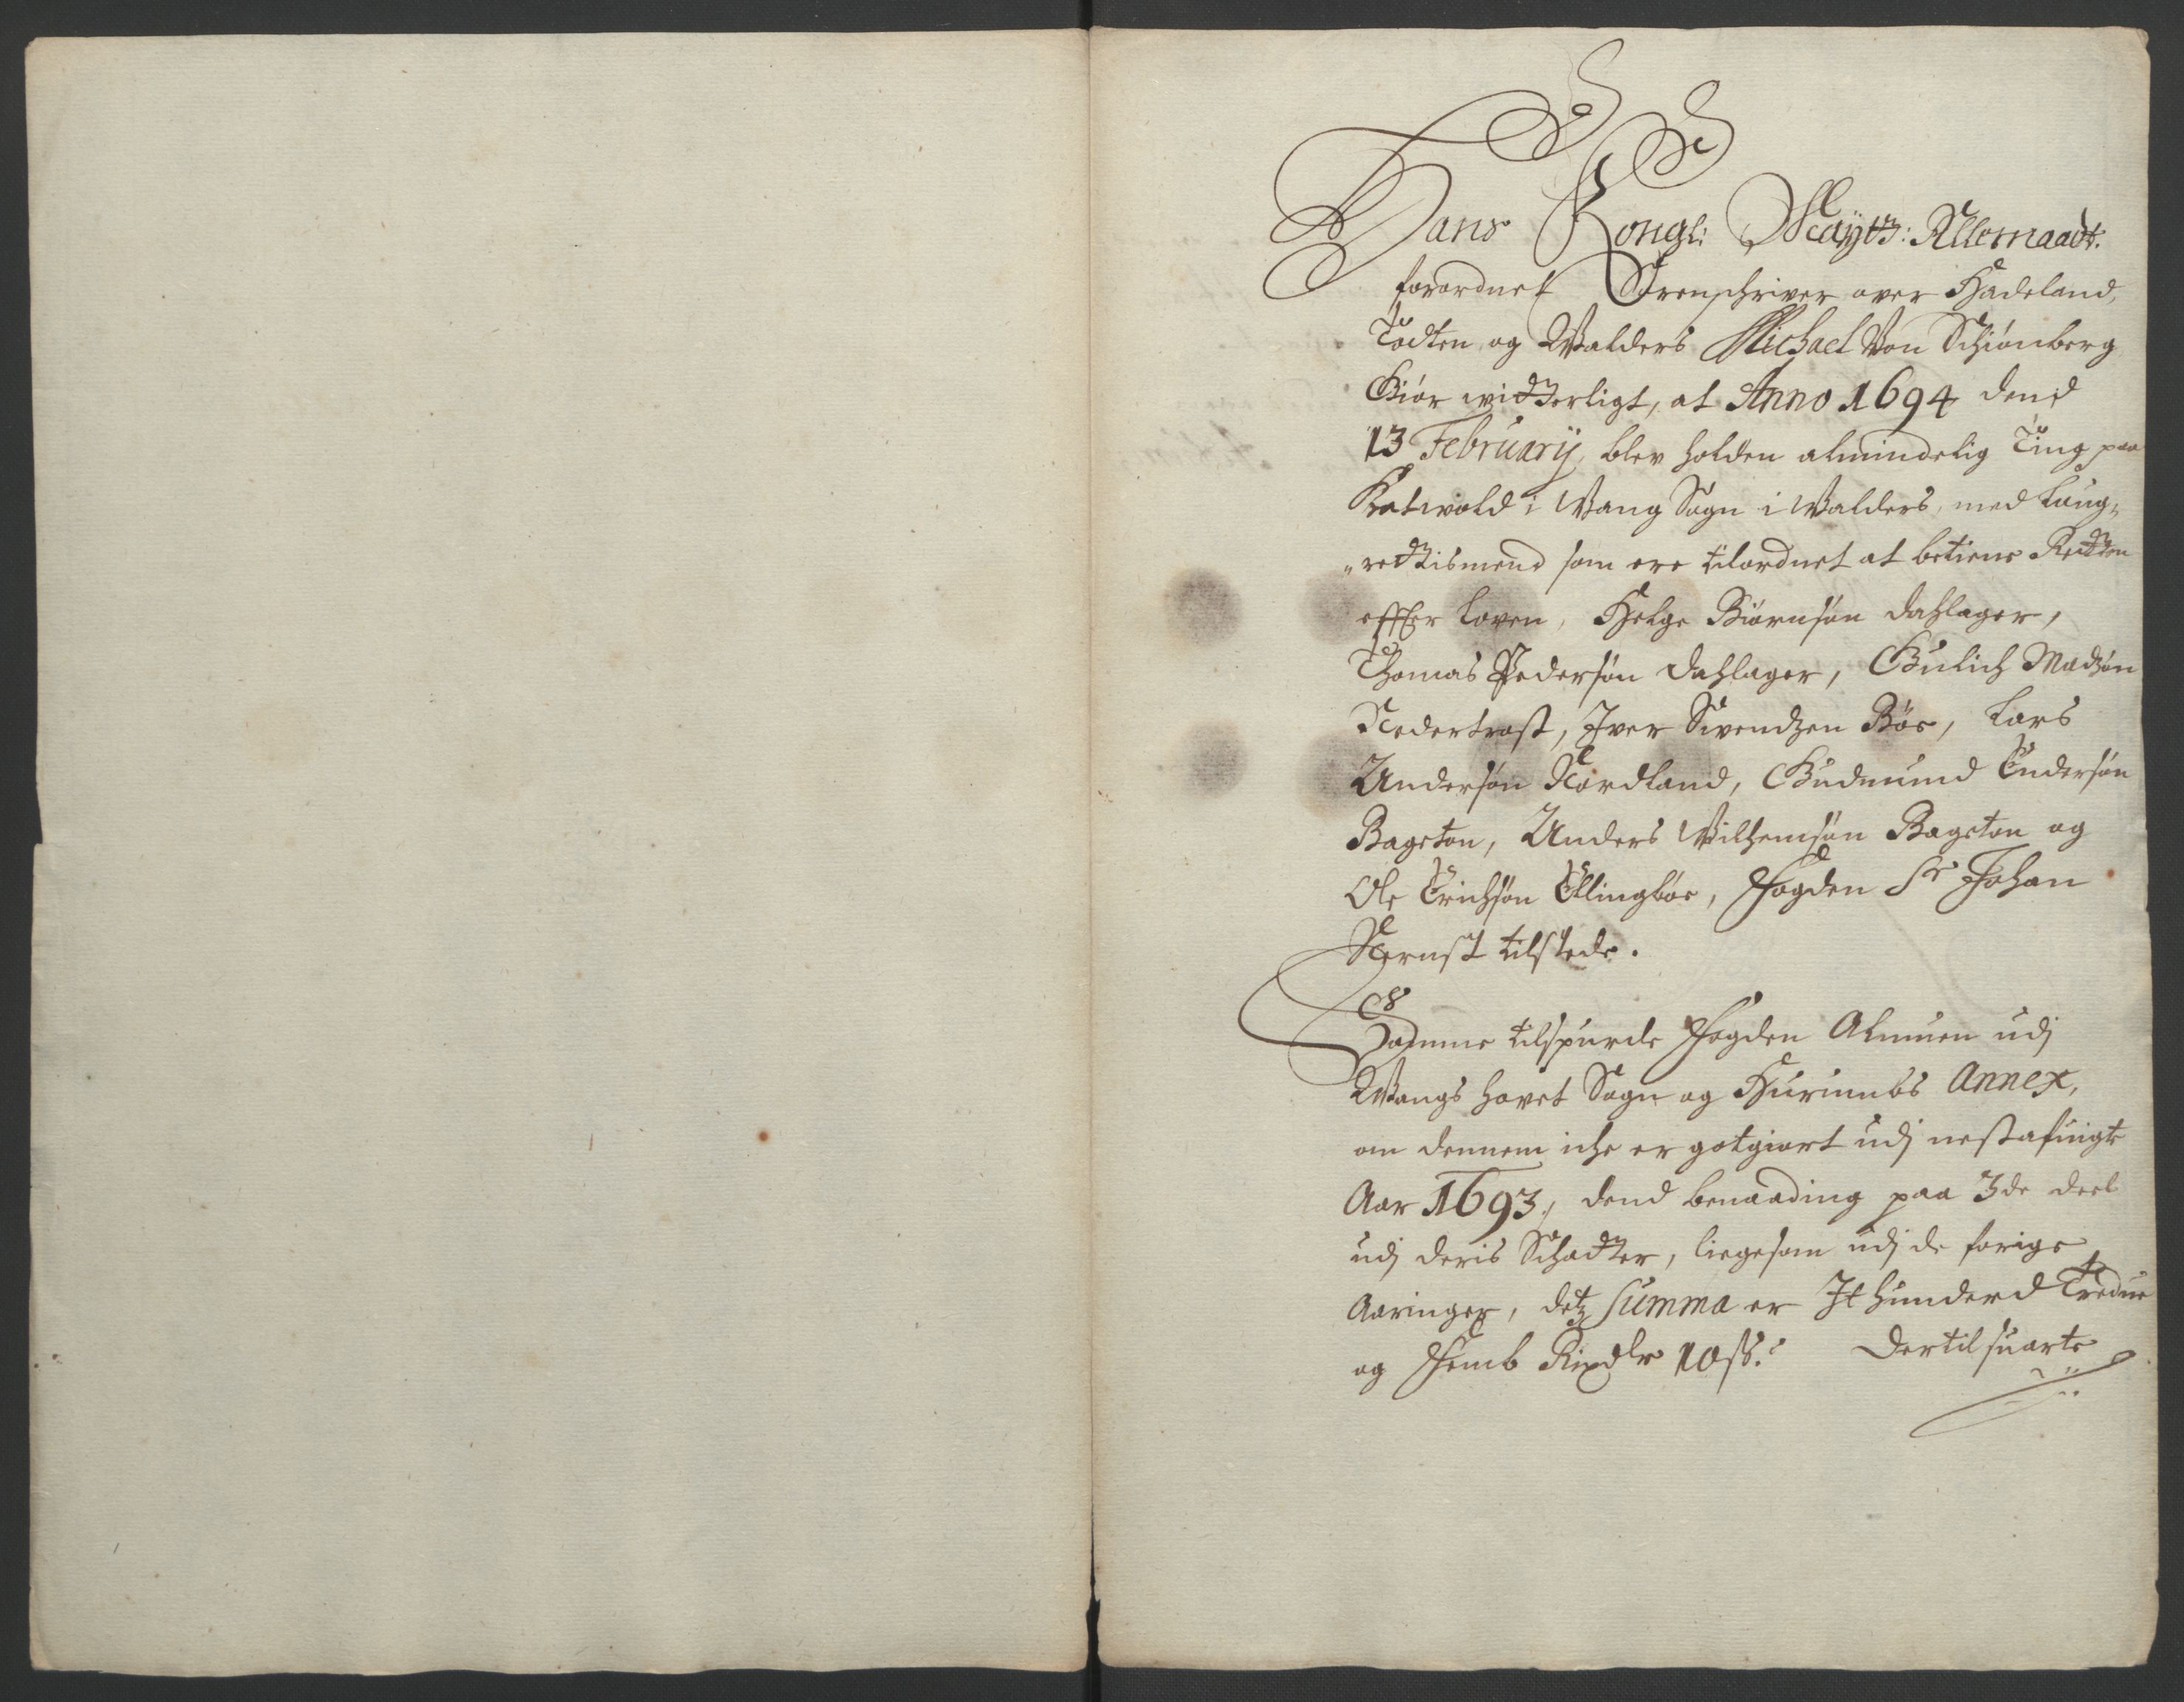 Hans Kongl: Maÿtz: Allernaadt:
forordnet Sorenschriver over Hadeland,
Todten og Walders Michael Von Schiønberg
Giør widterligt, at Anno 1694 dend
13 Februarij, blev holden almindelig Ting paa
Qvalswold i Wang Sogn i Walders, med Laug„
„redtismend som ere tilordnet at betiene Retten
effter Loven, Helge Biørnsøn Dahlager,
Thomas Pedersøn Dahlager, Gulich Madsøn
Nedertrost, Iver Swendzen Bøe, Lars
Andersøn Nordland, Gudmund Endersøn
Bagston, Anders Wilhemsøn Bagston og
Ole Erichsøn Ellingbøe, Fogden Sr Johan
Nernst tilstede.
Samme tilspurde Fogden Almuen udj
Wangs hovet Sogn og Hurumbs Annex,
om dennem iche er gotgiort udj nestafuigte
Aar 1693, dend benaading paa 3de deel
udj deris Schadter, liigesom udj de forige
Aaringer, dets summa er It hunderd Tredue
og Femb Rixdlr 10 ss: Dertil suarte